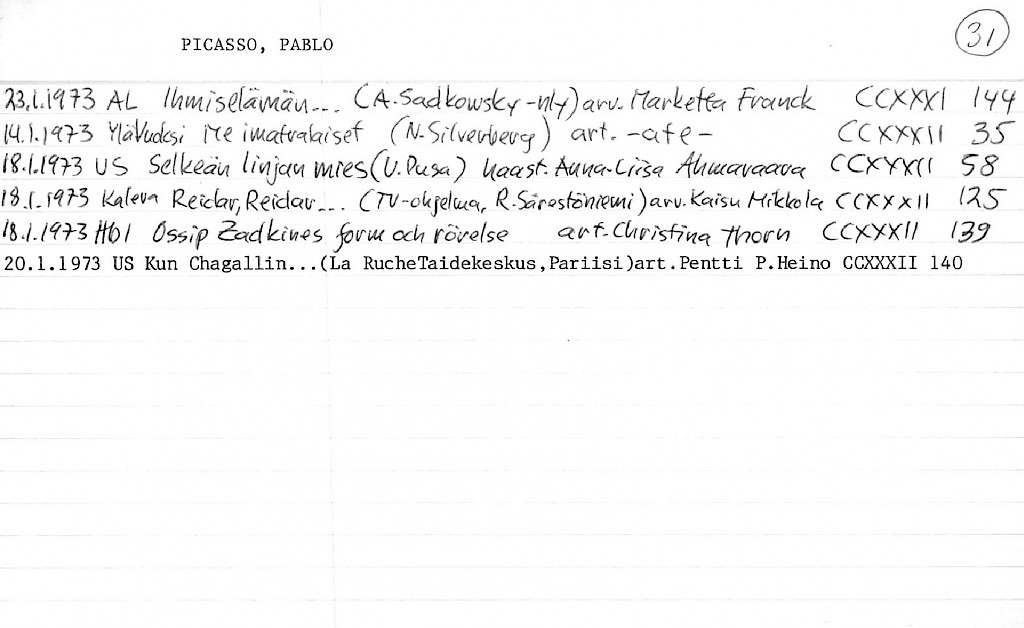 PICASSO, PABLO
31
23.1.1973 AL Ihmiselämän... (A.Sadkowsky-nly) arv. Marketta Franck CCXXXI 144
14.1.1973 YläVuoksi Me imatralaiset (N.Silverberg) art. -afe- CCXXXII 35
18.1.1973 US Selkeän linjan mies (U.Pusa) haast. Anna-Liisa Ahmavaara CCXXXII 58
18.1.1973 Kaleva Reidar, Reidar... (TV-ohjelma, R.Särestöniemi) arv. Kaisu Mikkola CCXXXII 125
18.1.1973 Hbl Ossip Zadkines form och rörelse art. Christina Thorn CCXXXII 139
20.1.1973 US Kun Chagallin...(La RucheTaidekeskus,Pariisi)art.Pentti P.Heino CCXXXII 140